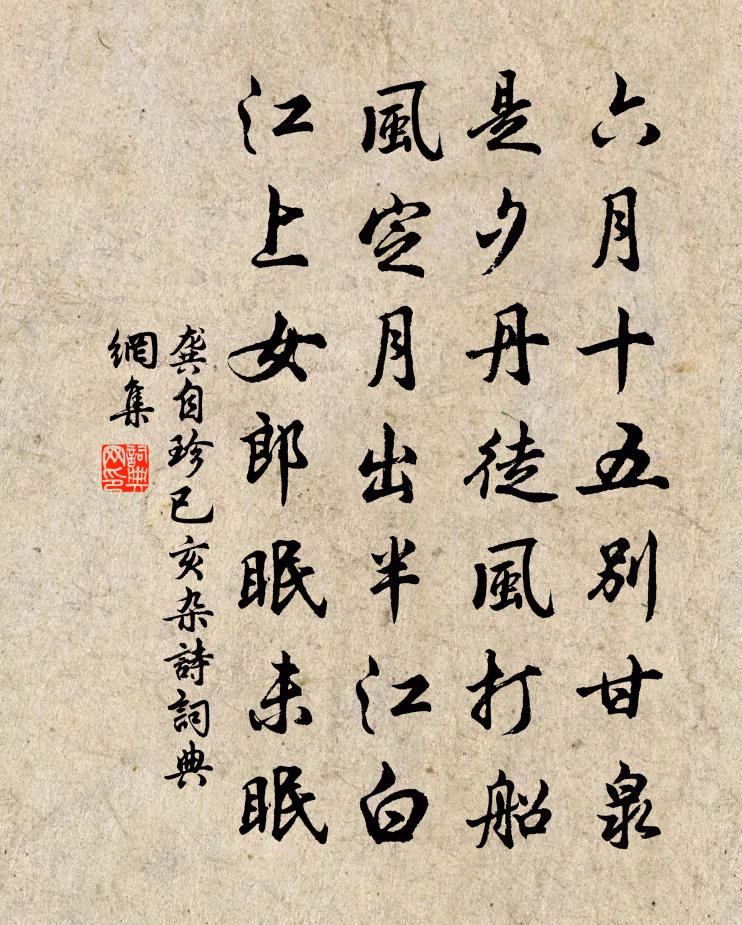 六月十五別甘泉
是夕丹徒風打船
風定月出半江白
江上女郎眠未眠
龔自珍己亥杂詩詞典
網集
詞典
网印